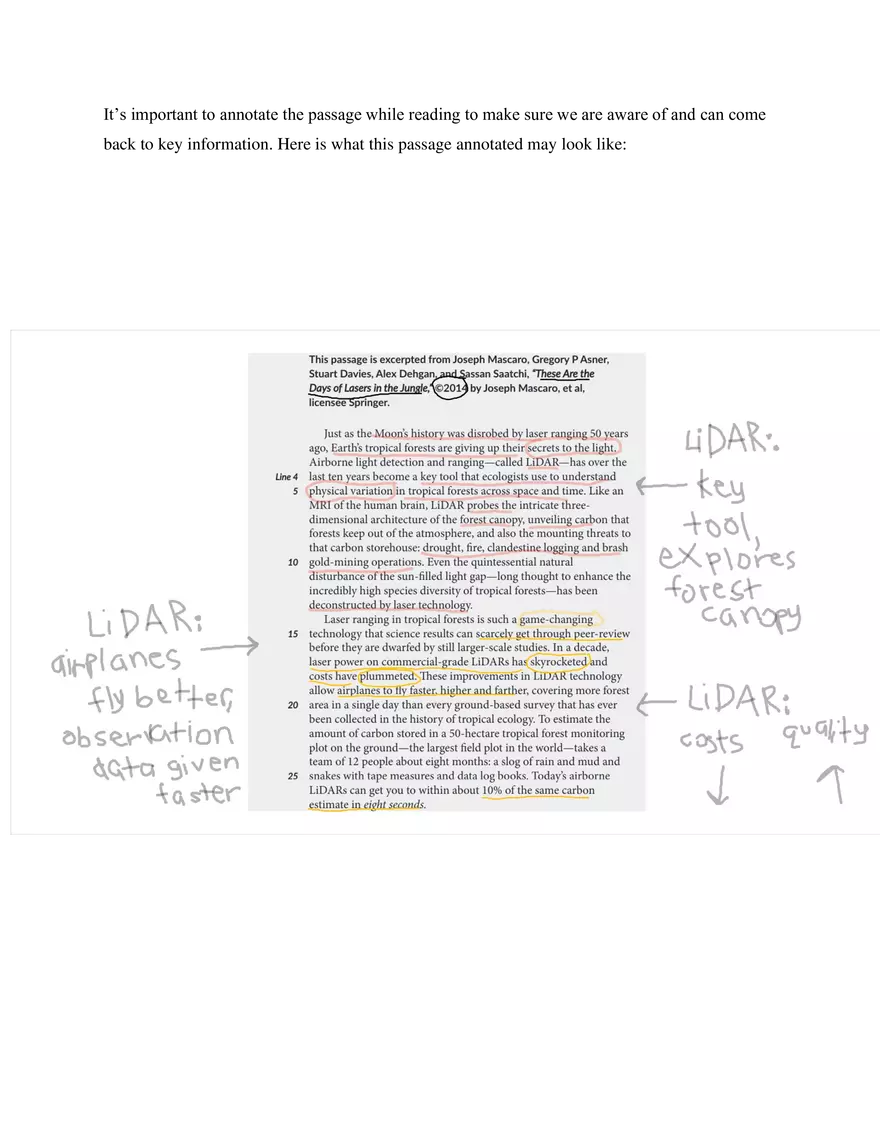 It’s important to annotate the passage while reading to make sure we are aware of and can come
back to key information. Here is what this passage annotated may look like:
This passage is excerpted from Joseph Mascaro, Gregory P Asner,
Stuart Davies, Alex Dehgan, and Sassan Saatchi, “These Are the
Days of Lasers in the Jungle,” ©2014 by Joseph Mascaro, et al,
licensee Springer.
Just as the Moon’s history was disrobed by laser ranging 50 years
ago, Earth’s tropical forests are giving up their secrets to the light.
Airborne light detection and ranging—called LiDAR—has over the
Line 4 last ten years become a key tool that ecologists use to understand
5 physical variation in tropical forests across space and time. Like an
MRI of the human brain, LiDAR probes the intricate three-
dimensional architecture of the forest canopy, unveiling carbon that
forests keep out of the atmosphere, and also the mounting threats to
that carbon storehouse: drought, fire, clandestine logging and brash
10 gold-mining operations. Even the quintessential natural
disturbance of the sun-filled light gap—long thought to enhance the
incredibly high species diversity of tropical forests—has been
deconstructed by laser technology.
Laser ranging in tropical forests is such a game-changing
15 technology that science results can scarcely get through peer-review
before they are dwarfed by still larger-scale studies. In a decade,
laser power on commercial-grade LiDARs has skyrocketed and
costs have plummeted. These improvements in LiDAR technology
allow airplanes to fly faster, higher and farther, covering more forest
20 area in a single day than every ground-based survey that has ever
been collected in the history of tropical ecology. To estimate the
amount of carbon stored in a 50-hectare tropical forest monitoring
plot on the ground—the largest field plot in the world—takes a
team of 12 people about eight months: a slog of rain and mud and
25 snakes with tape measures and data log books. Today’s airborne
LiDARs can get you to within about 10% of the same carbon
estimate in eight seconds.
LiDAR:
key
tool,
explores
forest
canopy
LiDAR:
airplanes
fly better,
observation
data given
faster
LiDAR:
costs quality
↓ ↑